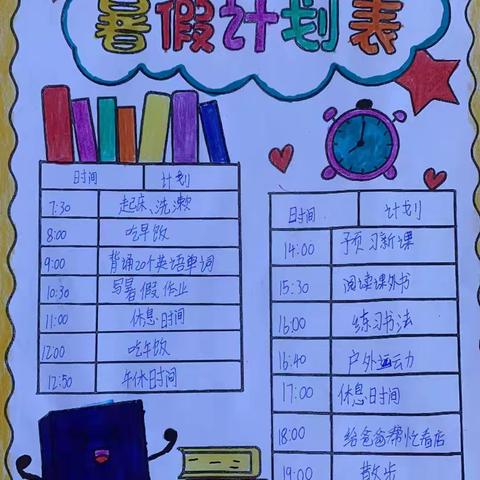 暑假计划表
时间 计划
7:30 起床、洗漱
8:00 吃早饭
9:00 背诵20个英语单词
10:30 写暑假作业
11:00 休息时间
12:00 吃午饭
12:50 午休时间
时间 计划
14:00 预习新课
15:30 阅读课外书
16:00 练习书法
16:40 户外运动
17:00 休息时间
18:00 给爸爸帮忙看店
19:00 散步